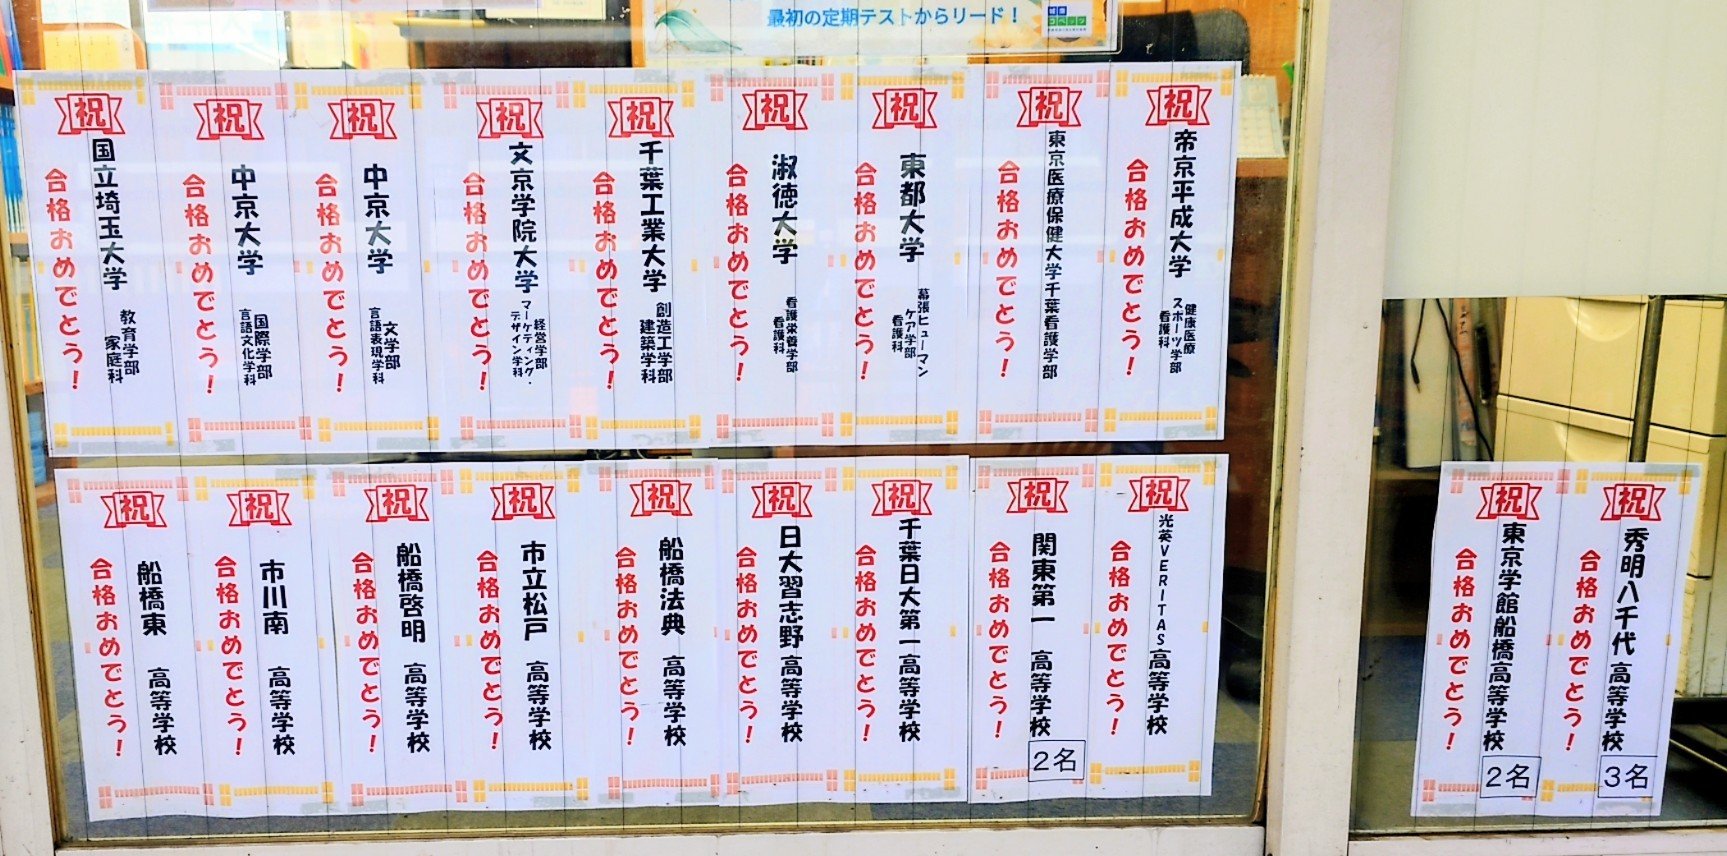 最初の定期テストからリード！
祝
帝京平成大学
健康医療
スポーツ学部
看護科
合格おめでとう！
祝
東京医療保健大学千葉看護学部
合格おめでとう！
祝
東都大学
幕張ヒューマン
ケア学部
看護科
合格おめでとう！
祝
淑徳大学
看護栄養学部
看護科
合格おめでとう！
祝
千葉工業大学
創造工学部
建築学科
合格おめでとう！
祝
文京学院大学
経営学部
マーケティング・
デザイン学科
合格おめでとう！
祝
中京大学
文学部
言語表現学科
合格おめでとう！
祝
中京大学
国際学部
言語文化学科
合格おめでとう！
祝
国立埼玉大学
教育学部
家庭科
合格おめでとう！
祝
秀明八千代高等学校
3名
合格おめでとう！
祝
東京学館船橋高等学校
2名
合格おめでとう！
祝
光英VERITAS高等学校
合格おめでとう！
祝
関東第一 高等学校
2名
合格おめでとう！
祝
千葉日大第一高等学校
合格おめでとう！
祝
日大習志野高等学校
合格おめでとう！
祝
船橋法典 高等学校
合格おめでとう！
祝
市立松戸 高等学校
合格おめでとう！
祝
船橋啓明 高等学校
合格おめでとう！
祝
市川南 高等学校
合格おめでとう！
祝
船橋東 高等学校
合格おめでとう！